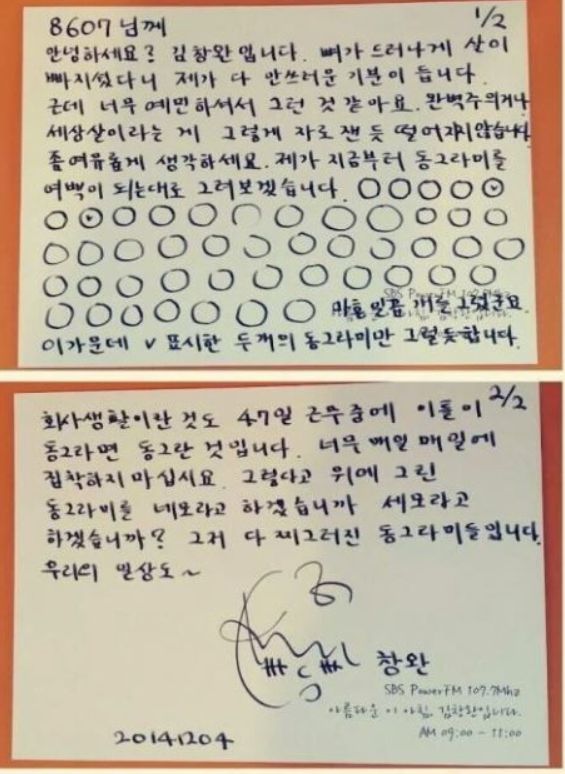 8607님께 1/2
안녕하세요? 김창완입니다. 뼈가 드러나게 살이
빠지셨다니 제가 다 안쓰러운 기분이 듭니다.
근데 너무 예민하셔서 그런 것 같아요. 완벽주의거나
세상살이라는 게 그렇게 자로 잰 듯 떨어지지 않습니다
좀 여유롭게 생각하세요. 제가 지금부터 동그라미를
여백이 되는대로 그려보겠습니다.
SBS Power FM 107.7Mhz
마흔일곱 개를 그렸군요
이 가운데 v 표시한 두개의 동그라미만 그럴듯합니다.
회사생활이란 것도 47일 근무 중에 이틀이 2/2
동그라면 동그란 것입니다. 너무 매일 매일에
집착하지 마십시요. 그렇다고 위에 그린
동그라미를 네모라고 하겠습니까 세모라고
하겠습니까? 그저 다 찌그러진 동그라미들입니다.
우리의 일상도~
창완
SBS Power FM 107.7Mhz
아름다운 이 아침, 김창완입니다.
AM 09:00 - 11:00
20141204